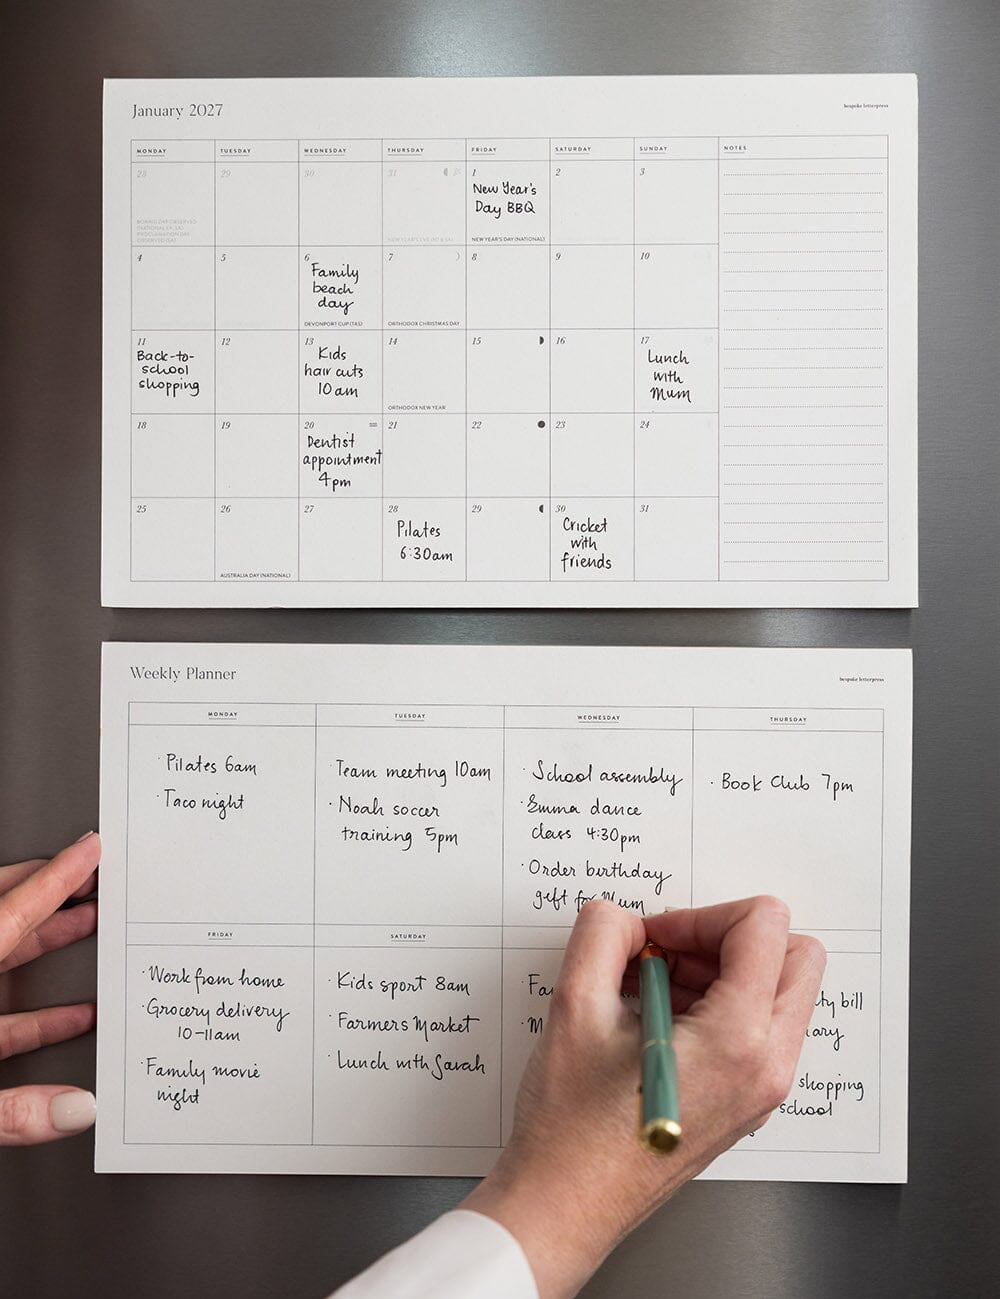 January 2027
bespoke letterpress
MONDAY TUESDAY WEDNESDAY THURSDAY FRIDAY SATURDAY SUNDAY NOTES
28 29 30 31 1 2 3
New Year's
Day BBQ
BOXING DAY OBSERVED
PROCLAMATION DAY
OBSERVED (SA)
NEW YEAR'S DAY (NATIONAL)
4 5 6 7 8 9 10
Family
beach
day
DEVONPORT CUP (TAS)
ORTHODOX CHRISTMAS DAY
11 12 13 14 15 16 17
Back-to-
school
shopping
Kids
hair cuts
10am
ORTHODOX NEW YEAR
Lunch
with
Mum
18 19 20 21 22 23 24
Dentist
appointment
4pm
25 26 27 28 29 30 31
AUSTRALIA DAY (NATIONAL)
Pilates
6:30am
Cricket
with
friends
Weekly Planner
bespoke letterpress
MONDAY
· Pilates 6am
· Taco night
TUESDAY
· Team meeting 10am
· Noah soccer
training 5pm
WEDNESDAY
· School assembly
· Emma dance
class 4:30pm
· Order birthday
gift for Mum
THURSDAY
· Book Club 7pm
FRIDAY
· Work from home
· Grocery delivery
10-11am
· Family movie
night
SATURDAY
· Kids sport 8am
· Farmers Market
· Lunch with Sarah
bill
shopping
school